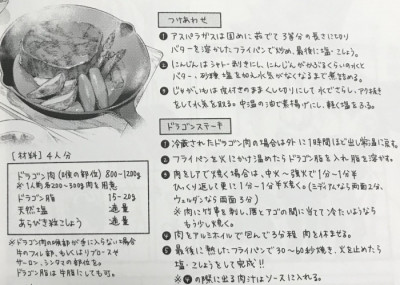 つけあわせ
① アスパラガスは固めに茹でて3等分の長さに切り
バターを溶かしたフライパンで炒め、最後に塩・こしょう。
② にんじんはシャトー剥きにし、にんじんがかぶるくらいの水と
バター、砂糖、塩を加え水気がなくなるまで煮詰める。
③ じゃがいもは皮付きのままくし切りにして水でさらし、アク抜き
をして水気を取る。中温の油で素揚げにし、軽く塩をふる。
[材料] 4人分
ドラゴン肉 800~1200g
※1人前 200~300g肉を用意
ドラゴン脂 15~20g
天然塩 適量
あらびき粒こしょう 適量
※ドラゴン肉の が手に入らない場合
牛のフィレ部、もしくはリブロースや
サーロイン、シンタマの部位を。
ドラゴン脂は牛脂にしても可。
ドラゴンステーキ
① 冷蔵されたドラゴン肉の場合は外に1時間ほど出し常温に戻す。
② フライパンを火にかけ温めたらドラゴン脂を入れ脂を溶かす。
③ 肉をレアで焼く場合は、中火~強火で1分~1分半
ひっくり返し更に1分~1分半焼く。(ミディアムなら両面2分、
ウェルダンなら両面3分)
※肉に竹串を刺し、唇と の間に当てて冷たいようなら
もう少し焼く。
④ 肉をアルミホイルで包んで3分程、肉を休ませる。
⑤ 最後に熱したフライパンで30~60秒焼き、火を止めたら
塩・こしょうをして完成!!
※④の際に出る肉汁はソースに入れる。